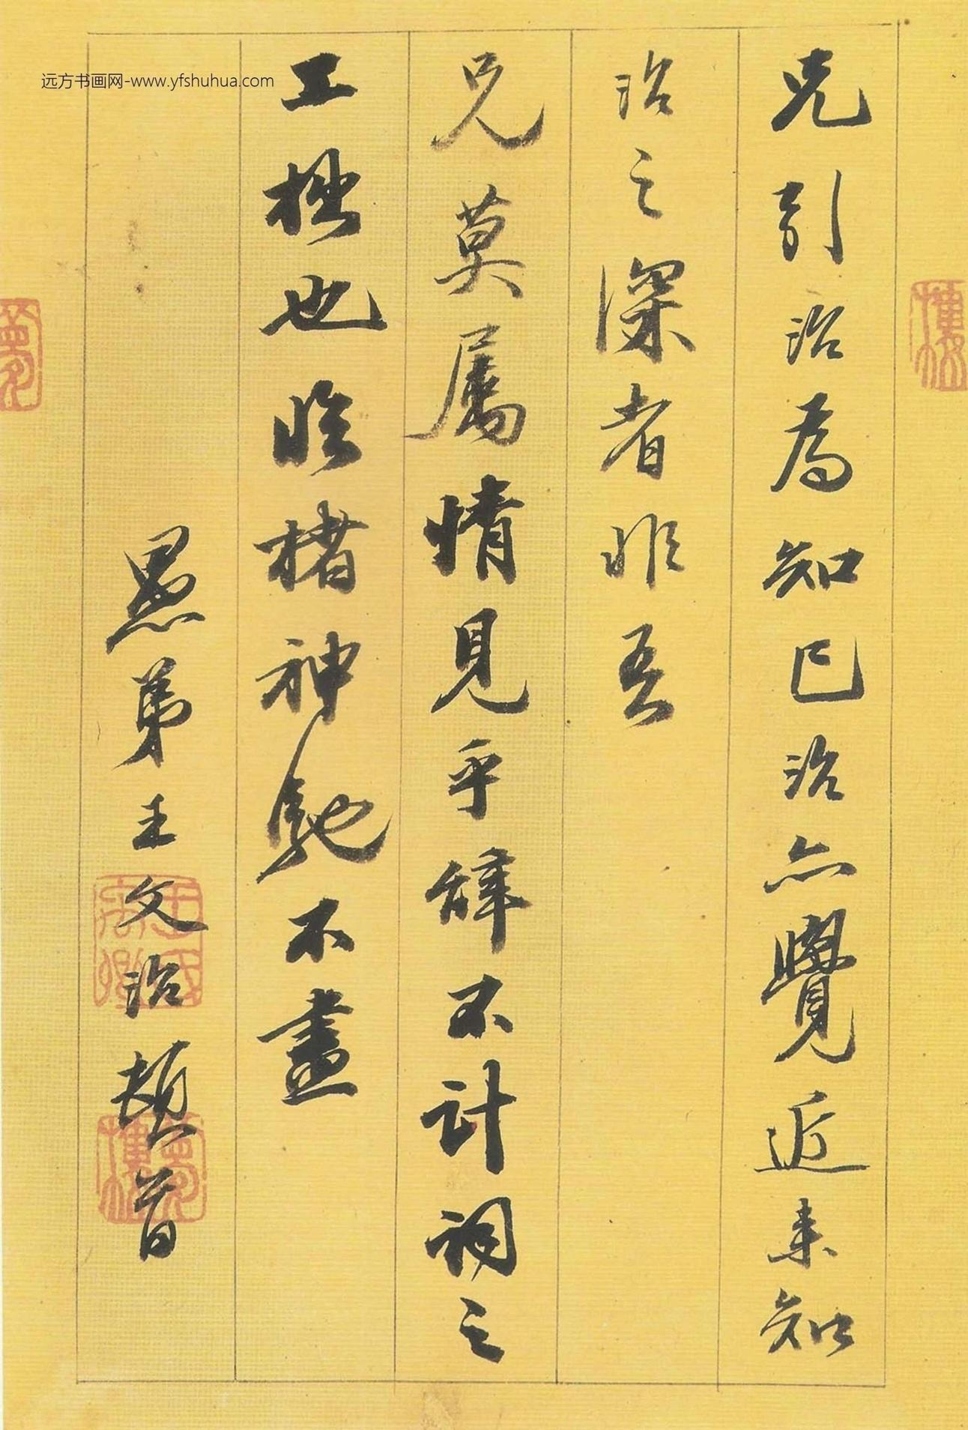 远方书画网-www.yfshuhua.com
兄引治為知己治亦覺近来知
治之深者非吾
兄莫屬情見乎辞不計詞之
工拙也臨楮神馳不盡
愚弟王文治頓首
夢樓